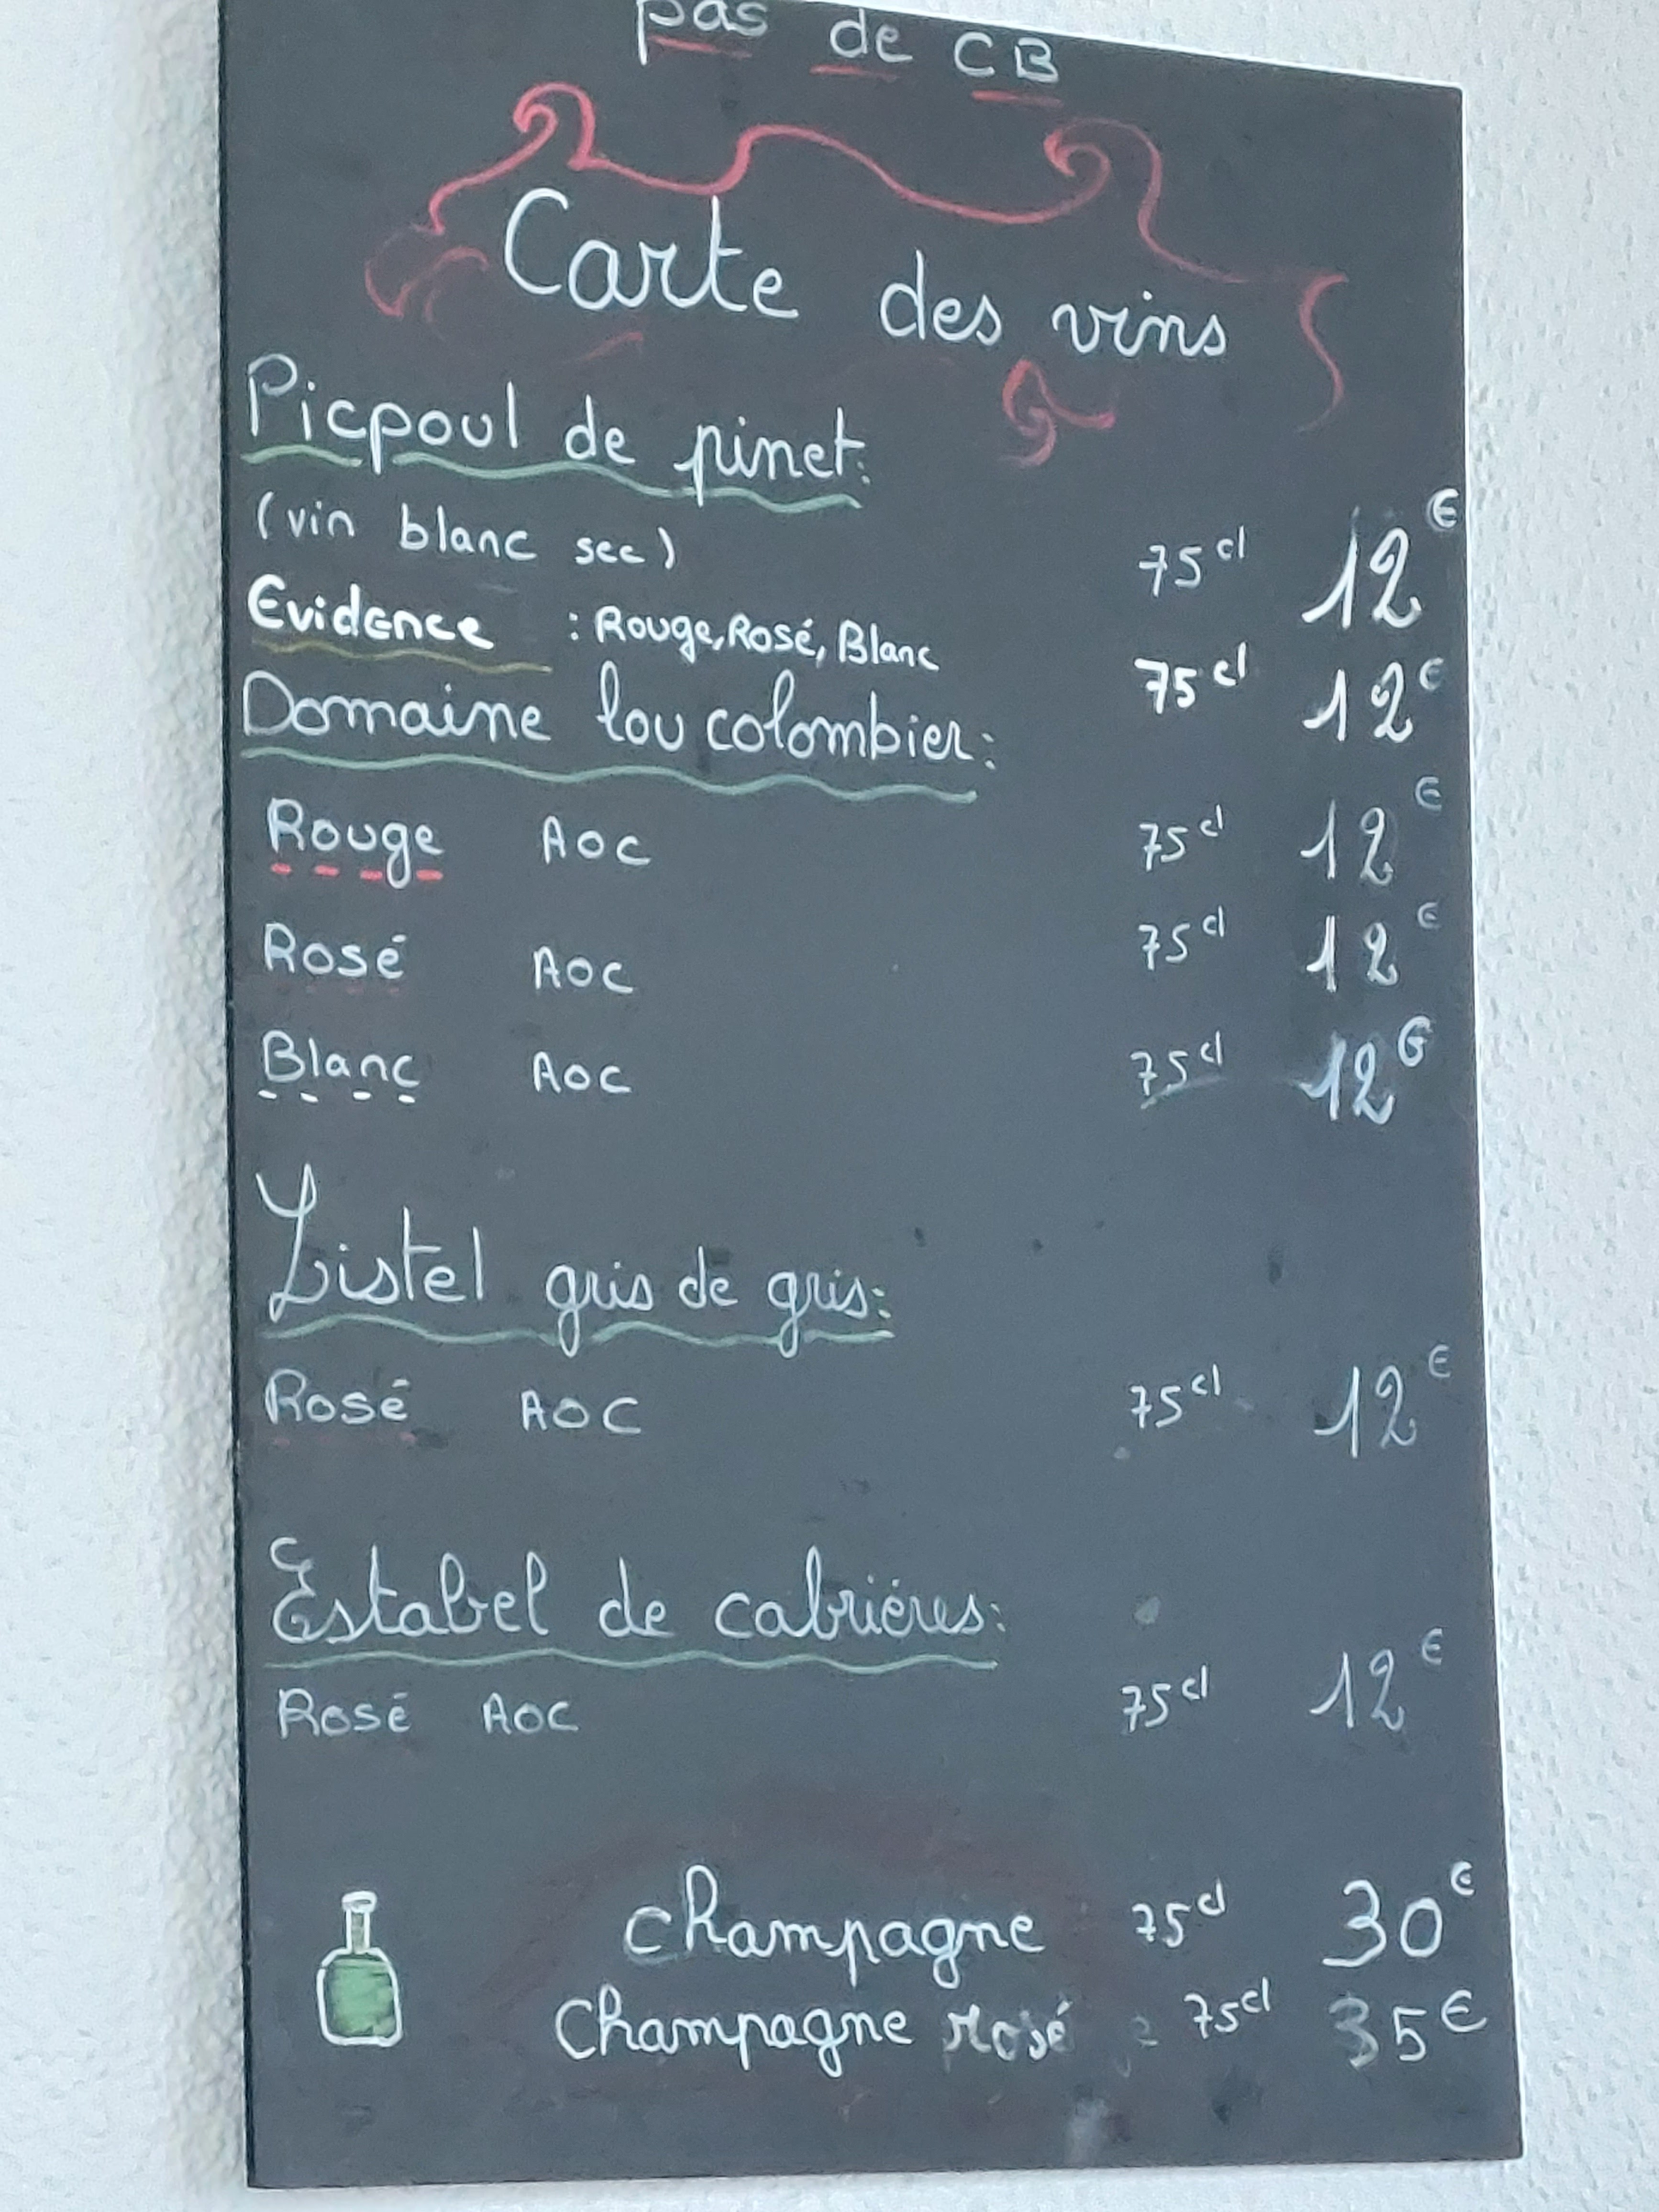 pas de CB
Carte des vins
Picpoul de pinet:
(vin blanc sec) 75cl 12€
Evidence : Rouge, Rosé, Blanc 75cl 12€
Domaine lou colombier:
Rouge AOC 75cl 12€
Rosé AOC 75cl 12€
Blanc AOC 75cl 12€
Listel gris de gris:
Rosé AOC 75cl 12€
Estabel de cabriéres:
Rosé AOC 75cl 12€
champagne 75cl 30€
Champagne rosé 75cl 35€